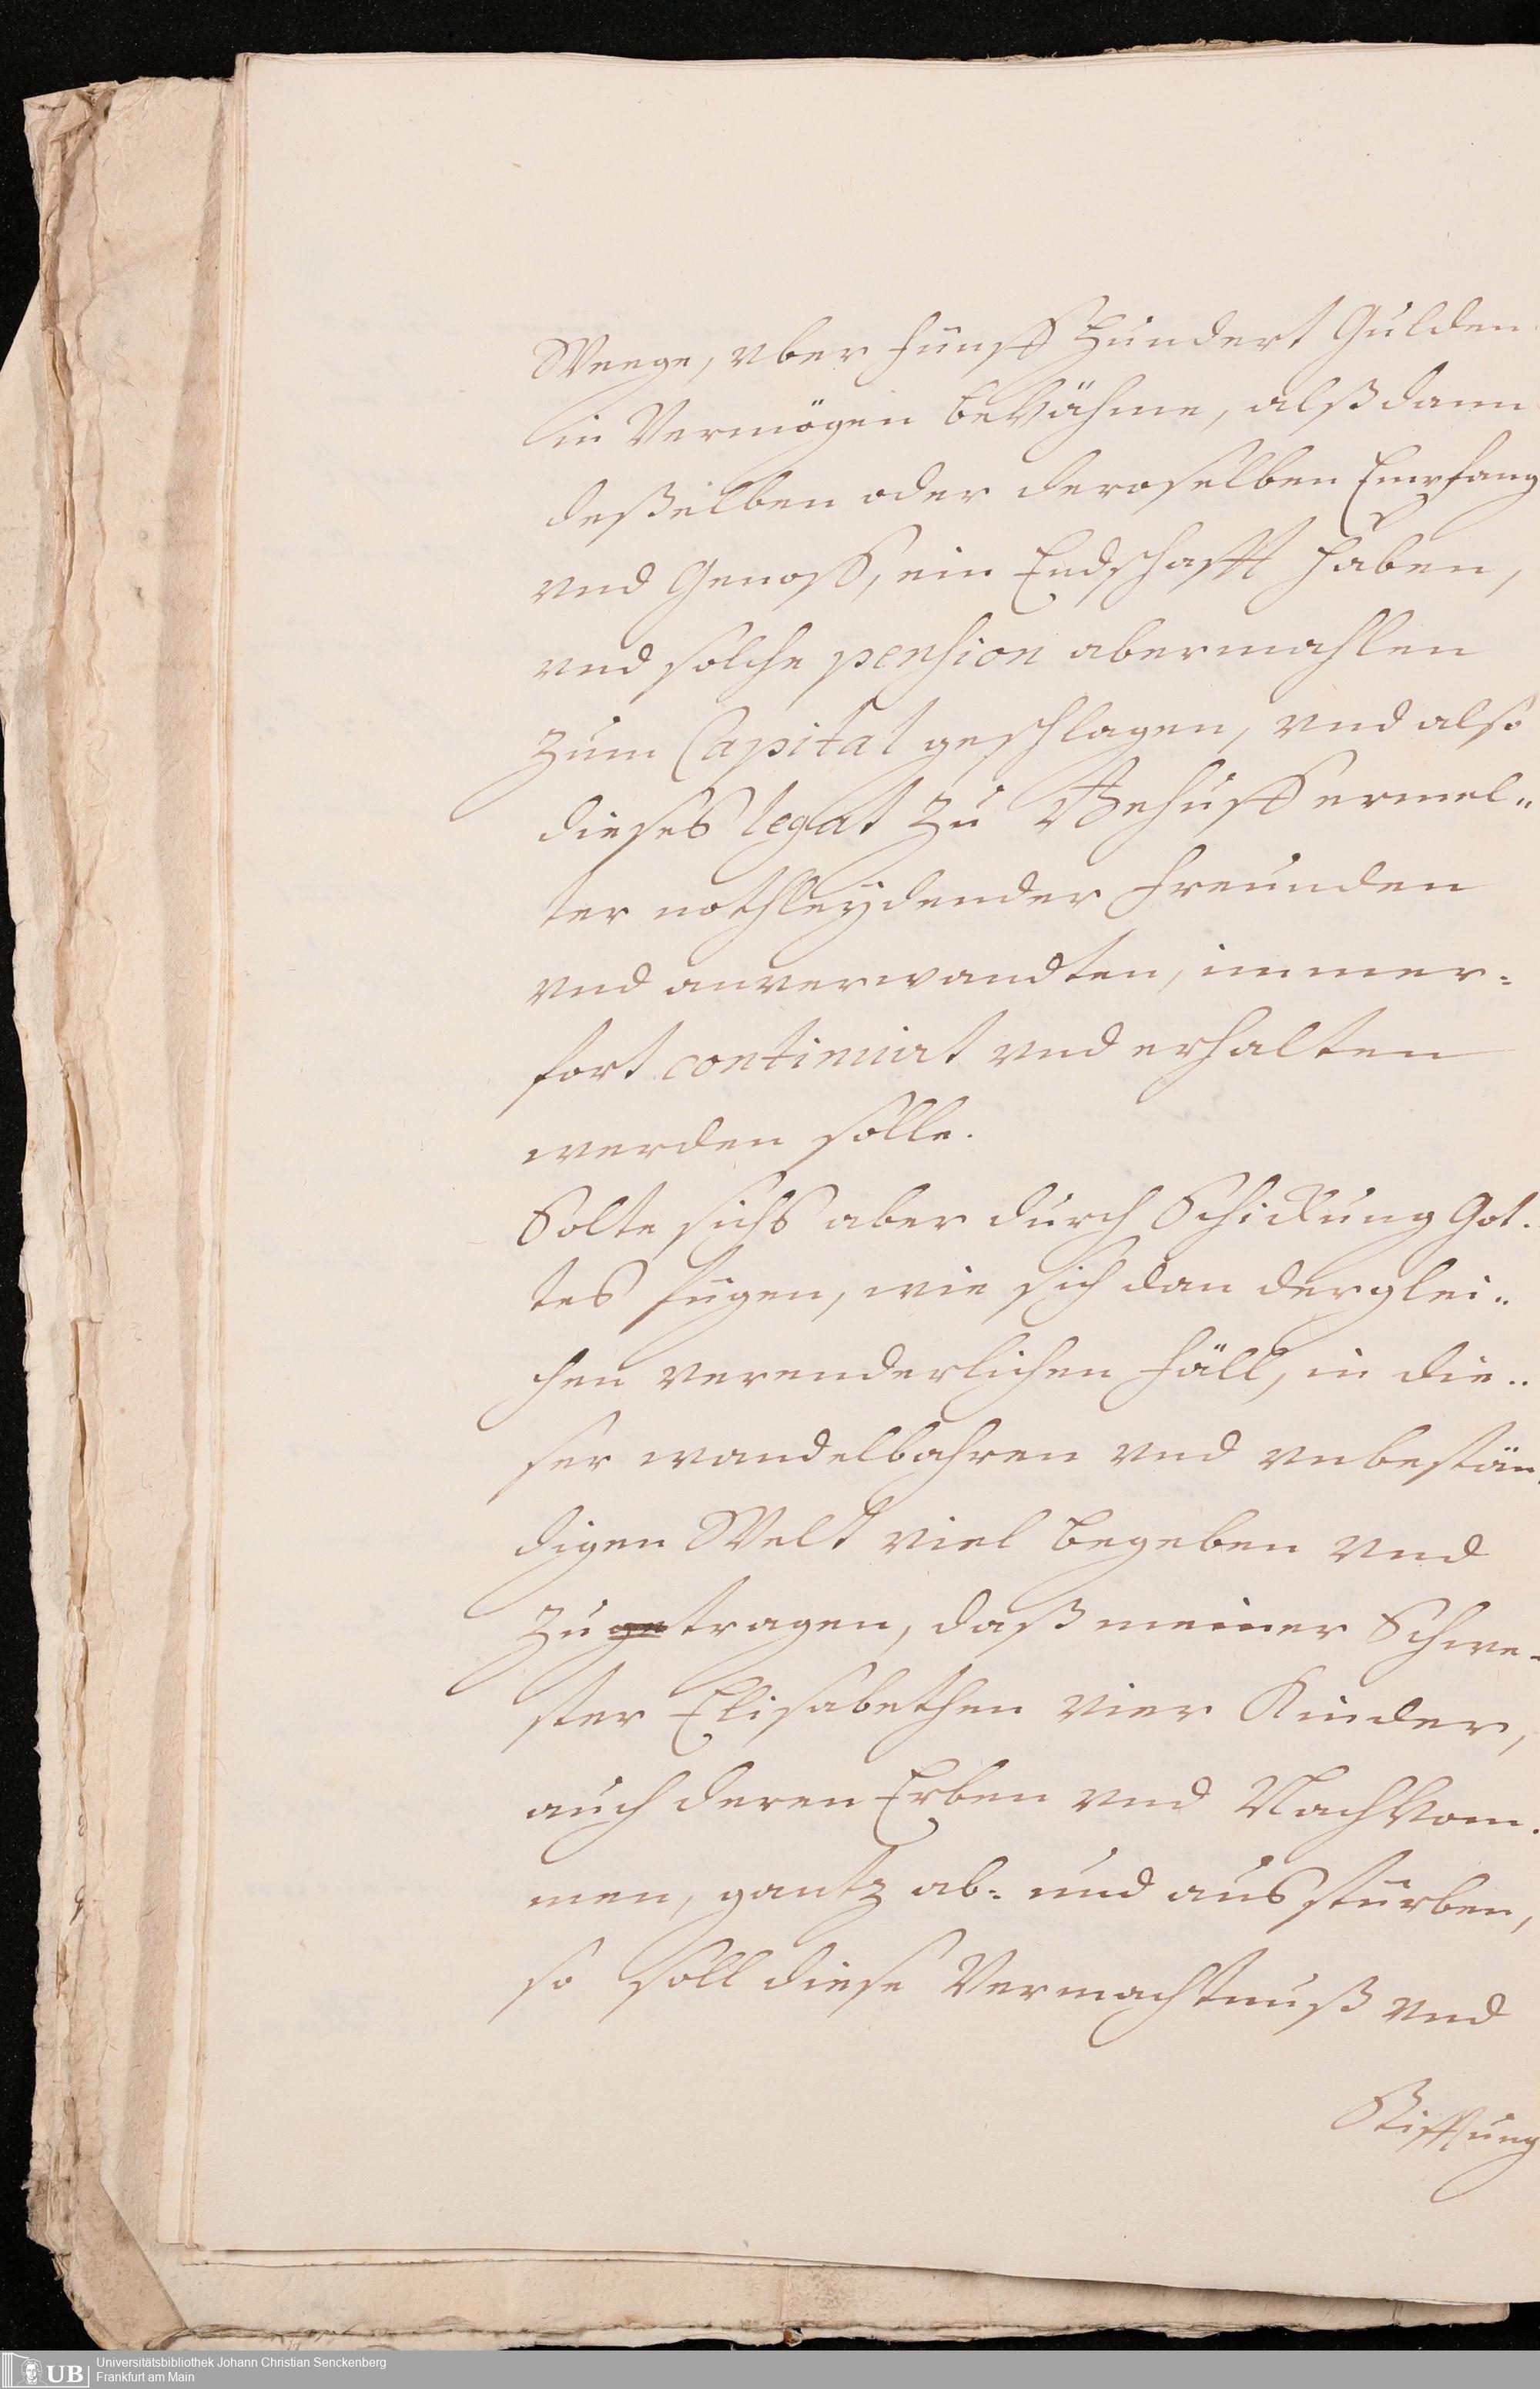 Weege, vber fünff Hundert Gulden
in Vermögen bekähme, alßdann
deßelben oder deroselben Empfang
vnd Genoß, ein Endschafft haben,
vnd solche pension abermahlen
zum Capital geschlagen, vnd also
dieses legat zu Behuff ermel„
ter nothleydender Freunden
vnd anverwandten, immer=
fort continuirt vnd erhalten
werden solle.
Solte sichs aber durch Schickung Got.
tes fügen, wie sich dan derglei„
chen verenderlichen Fäll, in die„
ser wandelbahren vnd vnbestän„
digen Welt viel begeben vnd
zugetragen, daß meiner Schwe=
ster Elisabethen vier Kinder,
auch deren Erben vnd Nachkom.
men, gantz ab= und ausstürben,
so soll diese Vermachtnuß vnd
Stifftung
UB Universitätsbibliothek Johann Christian Senckenberg
Frankfurt am Main